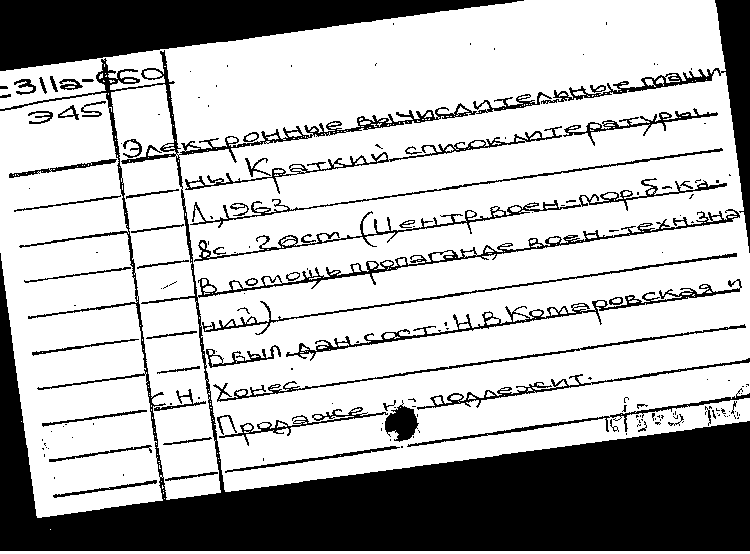 с311а-660
Э45
Электронные вычислительные маши-
ны. Краткий список литературы.
Л., 1963.
8с. 20см. (Центр. воен.-мор. б-ка.
В помощь пропаганде воен.-техн. зна-
ний).
В вып. дан. сост.: Н.В. Комаровская и
С.Н. Хонес.
Продаже не подлежит.